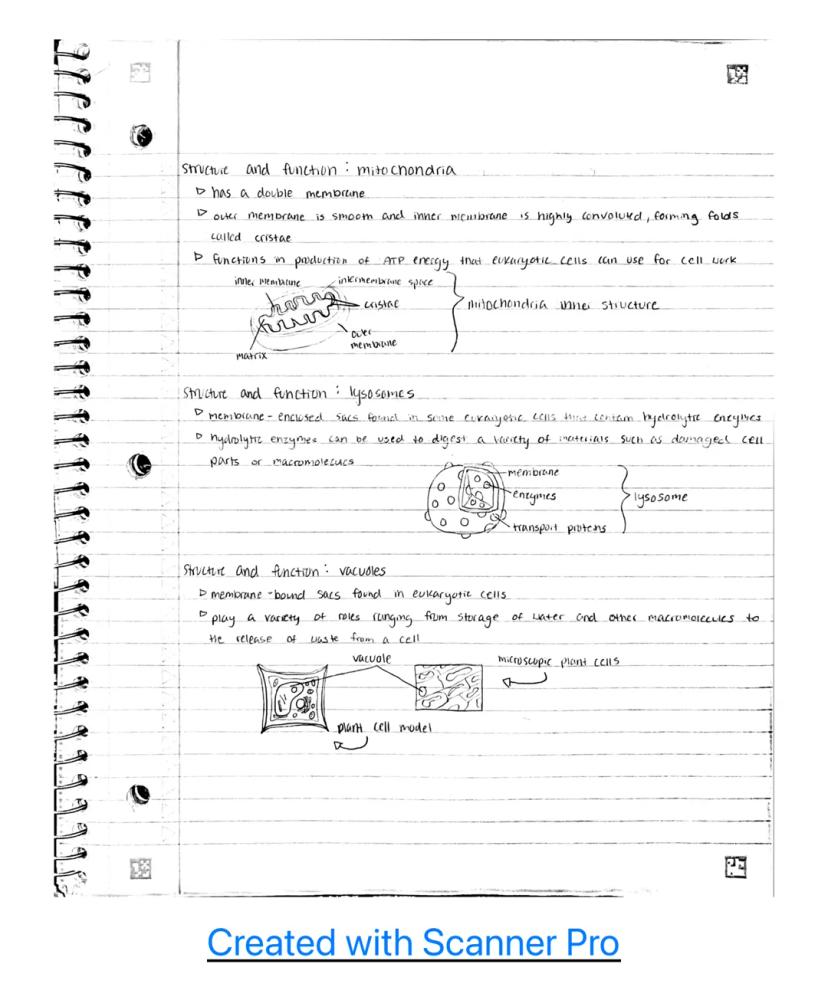 structure and function : mitochondria
▷ has a double membrane
▷ outer membrane is smooth and inner membrane is highly convoluted, forming folds
called cristae
▷ functions in production of ATP energy that eukaryotic cells can use for cell work
inner membrane
intermembrane space
cristae
mitochondria inner structure
outer
membrane
matrix
Structure and function : lysosomes
▷ membrane-enclosed sacs found in some eukaryotic cells that contain hydrolytic enzymes
▷ hydrolytic enzymes can be used to digest a variety of materials such as damaged cell
parts or macromolecules
membrane
enzymes
lysosome
transport proteins
Structure and function : vacuoles
▷ membrane-bound sacs found in eukaryotic cells
▷ play a variety of roles ranging from storage of water and other macromolecules to
the release of waste from a cell
vacuole
microscopic plant cells
plant cell model
Created with Scanner Pro